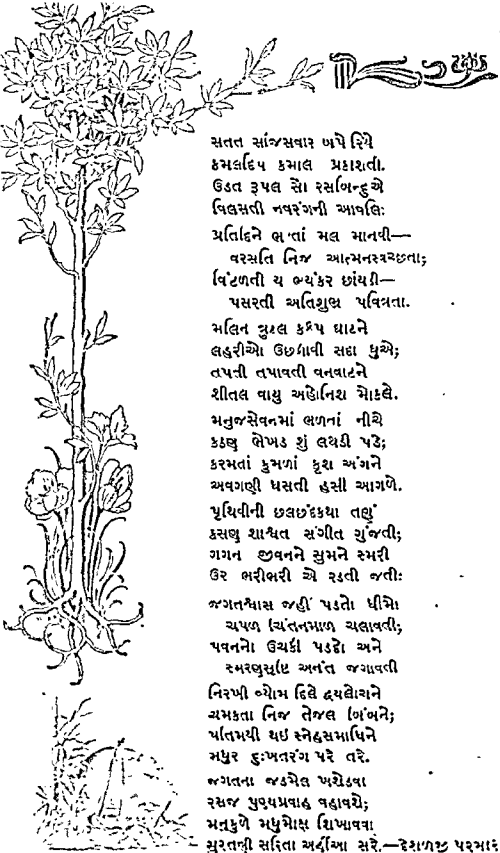 સતત સાંજસવાર ખપે રિયે
કમલદિપ કમાલ પ્રકાશતી.
ઉડત રૂપલ સૌ રસબિન્દુએ
વિલસતી નવરંગની આવલિઃ
પ્રતિદિને ભળતાં મલ માનવી—
વરસતિ નિજ આત્મનસ્વચ્છતા;
વિંટળતી ય ભયંકર છાંયડી—
પસરતી અતિશુભ્ર પવિત્રતા.
મલિન ત્રુટલ કશ્યપ ઘાટને
લહરીઓ ઉછળાવી સદા ધુએ;
તપતી તપાવતી વનવાટને
શીતલ વાયુ અહોનિશ મોકલે.
મનુજસેવનમાં ભળનાં નીચે
કઠણ ભેખડ શું લથડી પડે;
કરમતાં કુમળાં કૃશ અંગને
અવગણી ધસતી હસી આગળે.
પૃથિવીની છલછંદકથા તણું
કરુણ શાશ્વત સંગીત ગુંજતી;
ગગન જીવનને સુમને સ્મરી
ઉર ભરીભરી એ રડતી જતીઃ
જગતશ્વાસ જહીં પડતો ધીમો
ચપળ ચિંતનમાળ ચલાવતી;
પવનનો ઉચકી પડદો અને
સ્મરણસૃષ્ટિ અનંત જગાવતી
નિરખી વ્યોમ દિલે દ્વયલોચને
ચમકતા નિજ તેજલ બિંબને;
પતિમયી થઇ સ્નેહસમાધિને
મધુર દુઃખતરંગ પરે તરે.
જગતના જડમેલ ખશેડવા
રસજ પુણ્યપ્રવાહ વહાવશે;
મનકુળે મધુમોક્ષ શિખાવવા
સુરતણી સરિતા અહીંઆ સરે.—દેશળજી પરમાર